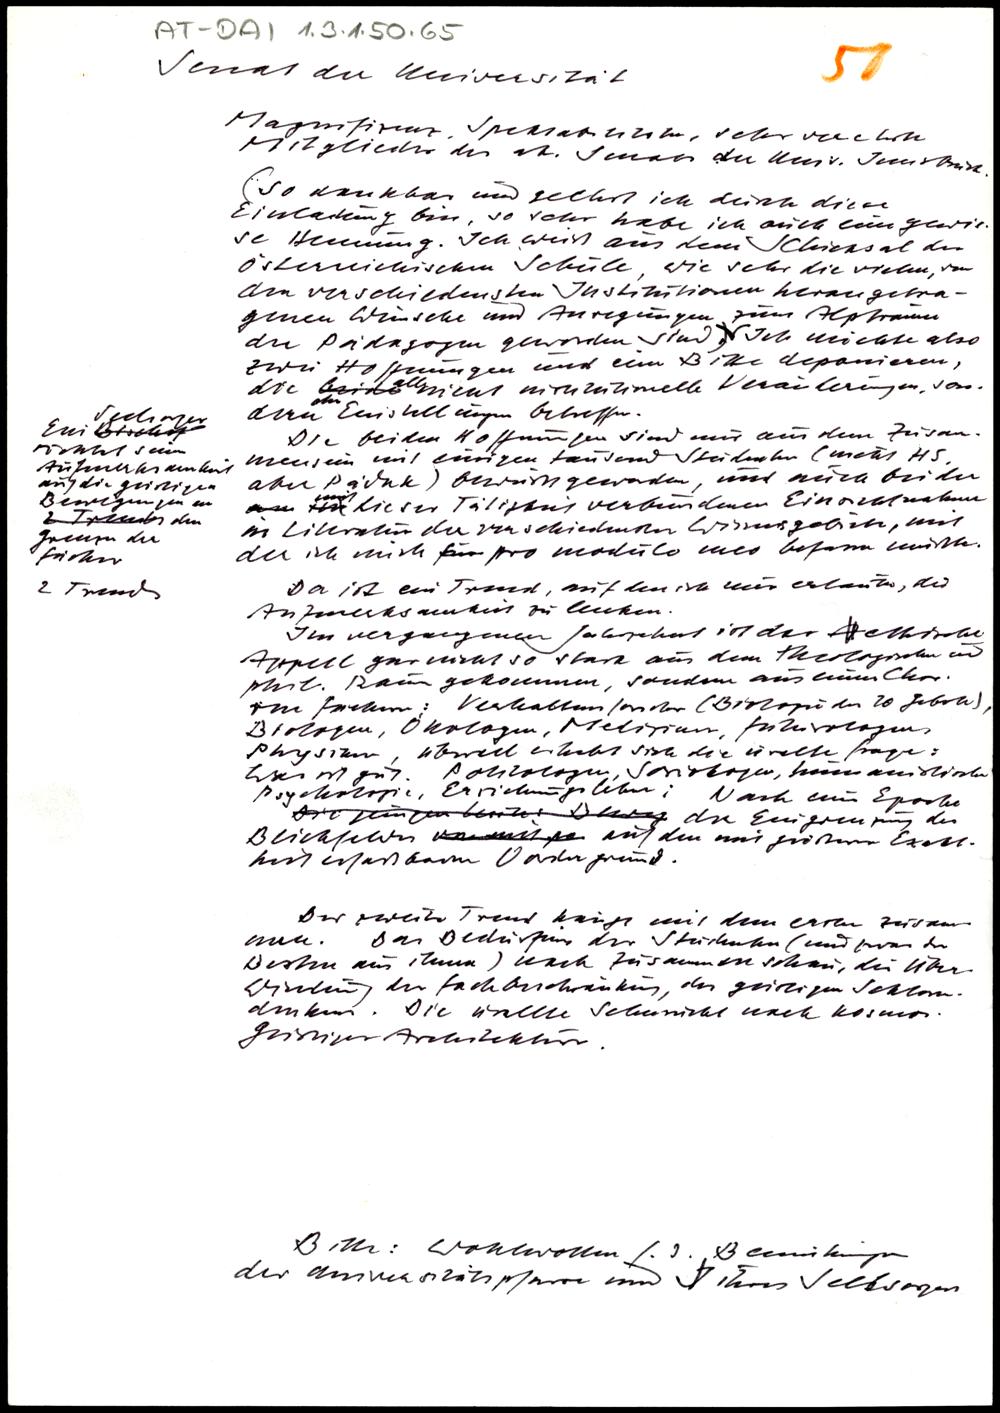 AT-DAI 1.3.1.50.65
51
Senat der Universität
Magnifizenz, Spektabilitäten, sehr verehrte
Mitglieder des ak. Senats der Univ. Innsbruck.
(So dankbar und geehrt ich durch diese
Einladung bin, so sehr habe ich auch eine gewis-
se Hemmung. Ich weiß aus dem Schicksal der
österreichischen Schule, wie sehr die vielen, von
den verschiedensten Institutionen herangetra-
genen Wünsche und Anregungen zum Alptraum
der Pädagogen geworden sind.) Ich möchte also
zwei Hoffnungen und eine Bitte deponieren,
die beide alle nicht institutionelle Veränderungen, son-
dern eher Einstellungen betreffen.
Die beiden Hoffnungen sind mir aus dem Zusam-
mensein mit einigen tausend Studenten (nicht HS,
aber Pädak) bewusst geworden, und auch bei der
mit dieser Tätigkeit verbundenen Einsichtnahme
in Literatur der verschiedensten Wissensgebiete, mit
der ich mich für pro modulo meo befassen musste.
Ein Bischof Seelsorger
richtet sein
Aufmerksamkeit
auf die geistigen
Bewegungen an
2 Trends den
Grenzen der
Fächer
2 Trends
Da ist ein Trend, auf den ich mir erlaube, die
Aufmerksamkeit zu lenken.
Im vergangenen Jahrzehnt ist der ethische
Appell gar nicht so stark aus dem theologischen und
phil. Raum gekommen, sondern aus einem Chor
von Fächern: Verhaltensforscher (Biologie der 10 Gebote),
Biologen, Ökologen, Mediziner, Futurologen,
Physiker, überall erhebt sich die uralte Frage:
Was ist gut. Politologen, Soziologen, humanistische
Psychologie, Erziehungslehre; Nach einer Epoche
der Eingrenzung des
Blickfeldes auf den mit größerer Exakt-
heit erfassbaren Vordergrund.
Der zweite Trend hängt mit dem ersten zusam-
men. Das Bedürfnis der Studenten (und zwar der
Besten aus ihnen) nach Zusammenschau, die Über-
windung der Fachbeschränkung, des geistigen
Die uralte Sehnsucht nach kosmos.
geistiger Architektur.
Bitte: Wohlwollen f. d. Bemühungen
der Universitätspfarre und ihres Seelsorgers